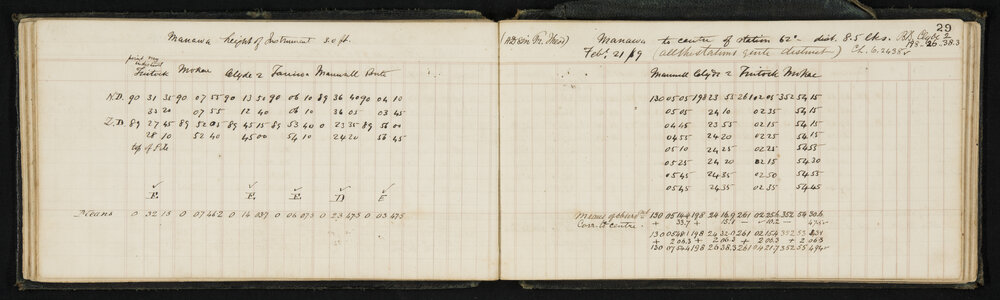 Manawa height of Instrument 3.0 ft.
Trilock Mokae Clyde 2 Tarrison Maxwell Bute
N.D. 90 31 35 90 07 55 90 13 50 90 06 10 89 36 40 90 04 10
33 20 07 55 12 40 06 10 36 05 03 45
Z.D 89 27 45 89 52 05 89 45 15 89 53 40 0 23 35 89 56 00
28 10 52 40 45 00 54 10 24 20 56 45
top of Pile
E. E E D E
Means 0 32 15 0 07 46.2 0 14 03.7 0 06 07.5 0 23 47.5 0 03 47.5
29
Manawa to centre of station 62° - dist. 8.5 lks.
Feb. 21/79 (all the stations quite distinct)
Maxwell Clyde 2 Trilock Mokae
130 05 05 198 23 55 261 02 05 352 54 15
05 05 24 10 02 35 54 15
04 45 23 55 02 15 54 15
04 55 24 20 02 25 54 15
05 10 24 25 02 25 54 55
05 25 24 20 02 15 54 30
05 45 24 35 02 50 54 55
05 45 24 35 02 35 54 45
Means of observd 130 05 14.4 198 24 16.9 261 02 25.6 352 54 30.6
Corr. to centre + 33.7 + 15.1 - 10.2 - 47.2
130 05 48.1 198 24 32.0 261 02 15.4 352 53 43.4
+ 2 06.3 + 2 06.3 + 2 06.3 + 2 06.3
130 07 54.4 198 26 38.3 261 04 21.7 352 55 49.7